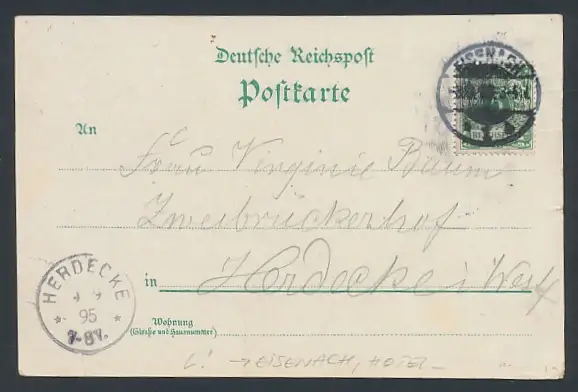 Deutsche Reichspost
Postkarte
EISENACH
An
Frau Virginie Baum
Zweibrückerhof
in Herdecke i/West
HERDECKE
95
7-8V.
Wohnung
(Straße und Hausnummer)
L! → EISENACH, HOTEL